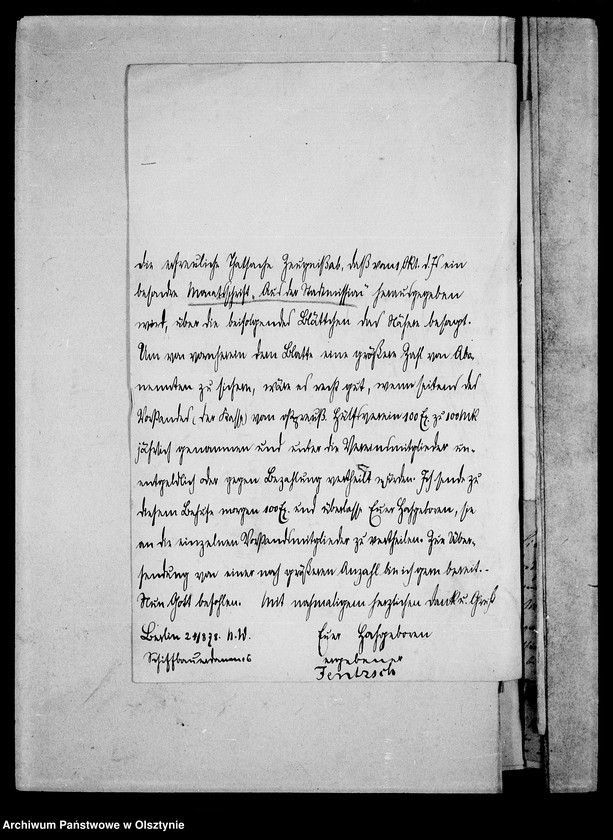 die erfreuliche Thatsache Zeugniß ab, daß vom 1. Okt. d. Js ein
besondre Monatsschrift „Aus der Stadtmission" herausgegeben
wird, über die beifolgendes Blättchen das Nähere besagt.
Um von vornherein dem Blatte eine größere Zahl von Abo-
nennten zu sichern, wäre es recht gut, wenn seitens des
Vorstandes (der Kasse) vom ostpreuß Hülfsverein 100 Ex. zu 100 Mk
jährlich genommen und unter die Vereinsmitglieder un-
entgeldlich oder gegen Bezahlung vertheilt würden. Ich sende zu
diesem Behufe morgen 100 Ex. und überlasse Euer Hochgeboren, sie
an die einzelnen Vorstandsmitglieder zu vertheilen. Zur Über-
sendung von einer noch größeren Anzahl bin ich gern bereit.-
Nun Gott befohlen. Mit nochmaligem herzlichen Dank u. Gruß
Berlin N.W.
Schiffbauerdamm
Euer Hochgeboren
ergebener
Jentzsch
Archiwum Państwowe w Olsztynie